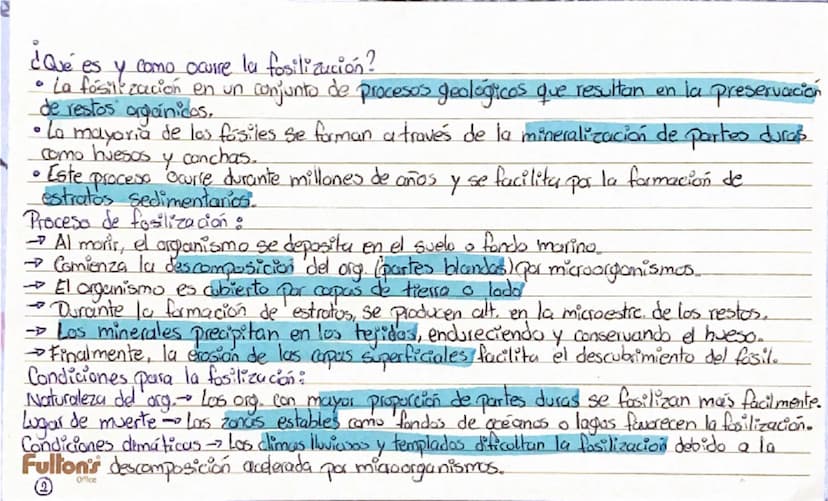 ¿Qué es y como ocurre la fosilización?
• La fósilización en un conjunto de procesos geológicos que resultan en la preservación
de restos orgánicos.
• La mayoría de los fósiles se forman a través de la mineralización de partes duras
como huesos y conchas.
• Este proceso ocurre durante millones de años y se facilita por la formación de
estratos sedimentarios.
Proceso de fosilización:
→ Al morir, el organismo se deposita en el suelo o fondo marino.
→ Comienza la descomposición del org. (partes blandas) por microorganismos.
→ El organismo es cubierto por capas de tierra o lodo
→ Durante la formación de estratos, se producen alt. en la microestrc. de los restos.
→ Los minerales precipitan en los tejidos, endureciendo y conservando el hueso.
→ Finalmente, la erosión de las capas superficiales facilita el descubrimiento del fósil.
Condiciones para la fosilización:
Naturaleza del org.→ Los org. con mayor proporción de partes duras se fosilizan más facilmente.
Lugar de muerte → Las zonas estables como fondos de océanos o lagos favorecen la fosilización.
Condiciones climáticas → Los climas lluviosos y templados dificultan la fosilización debido a la
descomposición acelerada por microorganismos.
Fulton's
Office
2